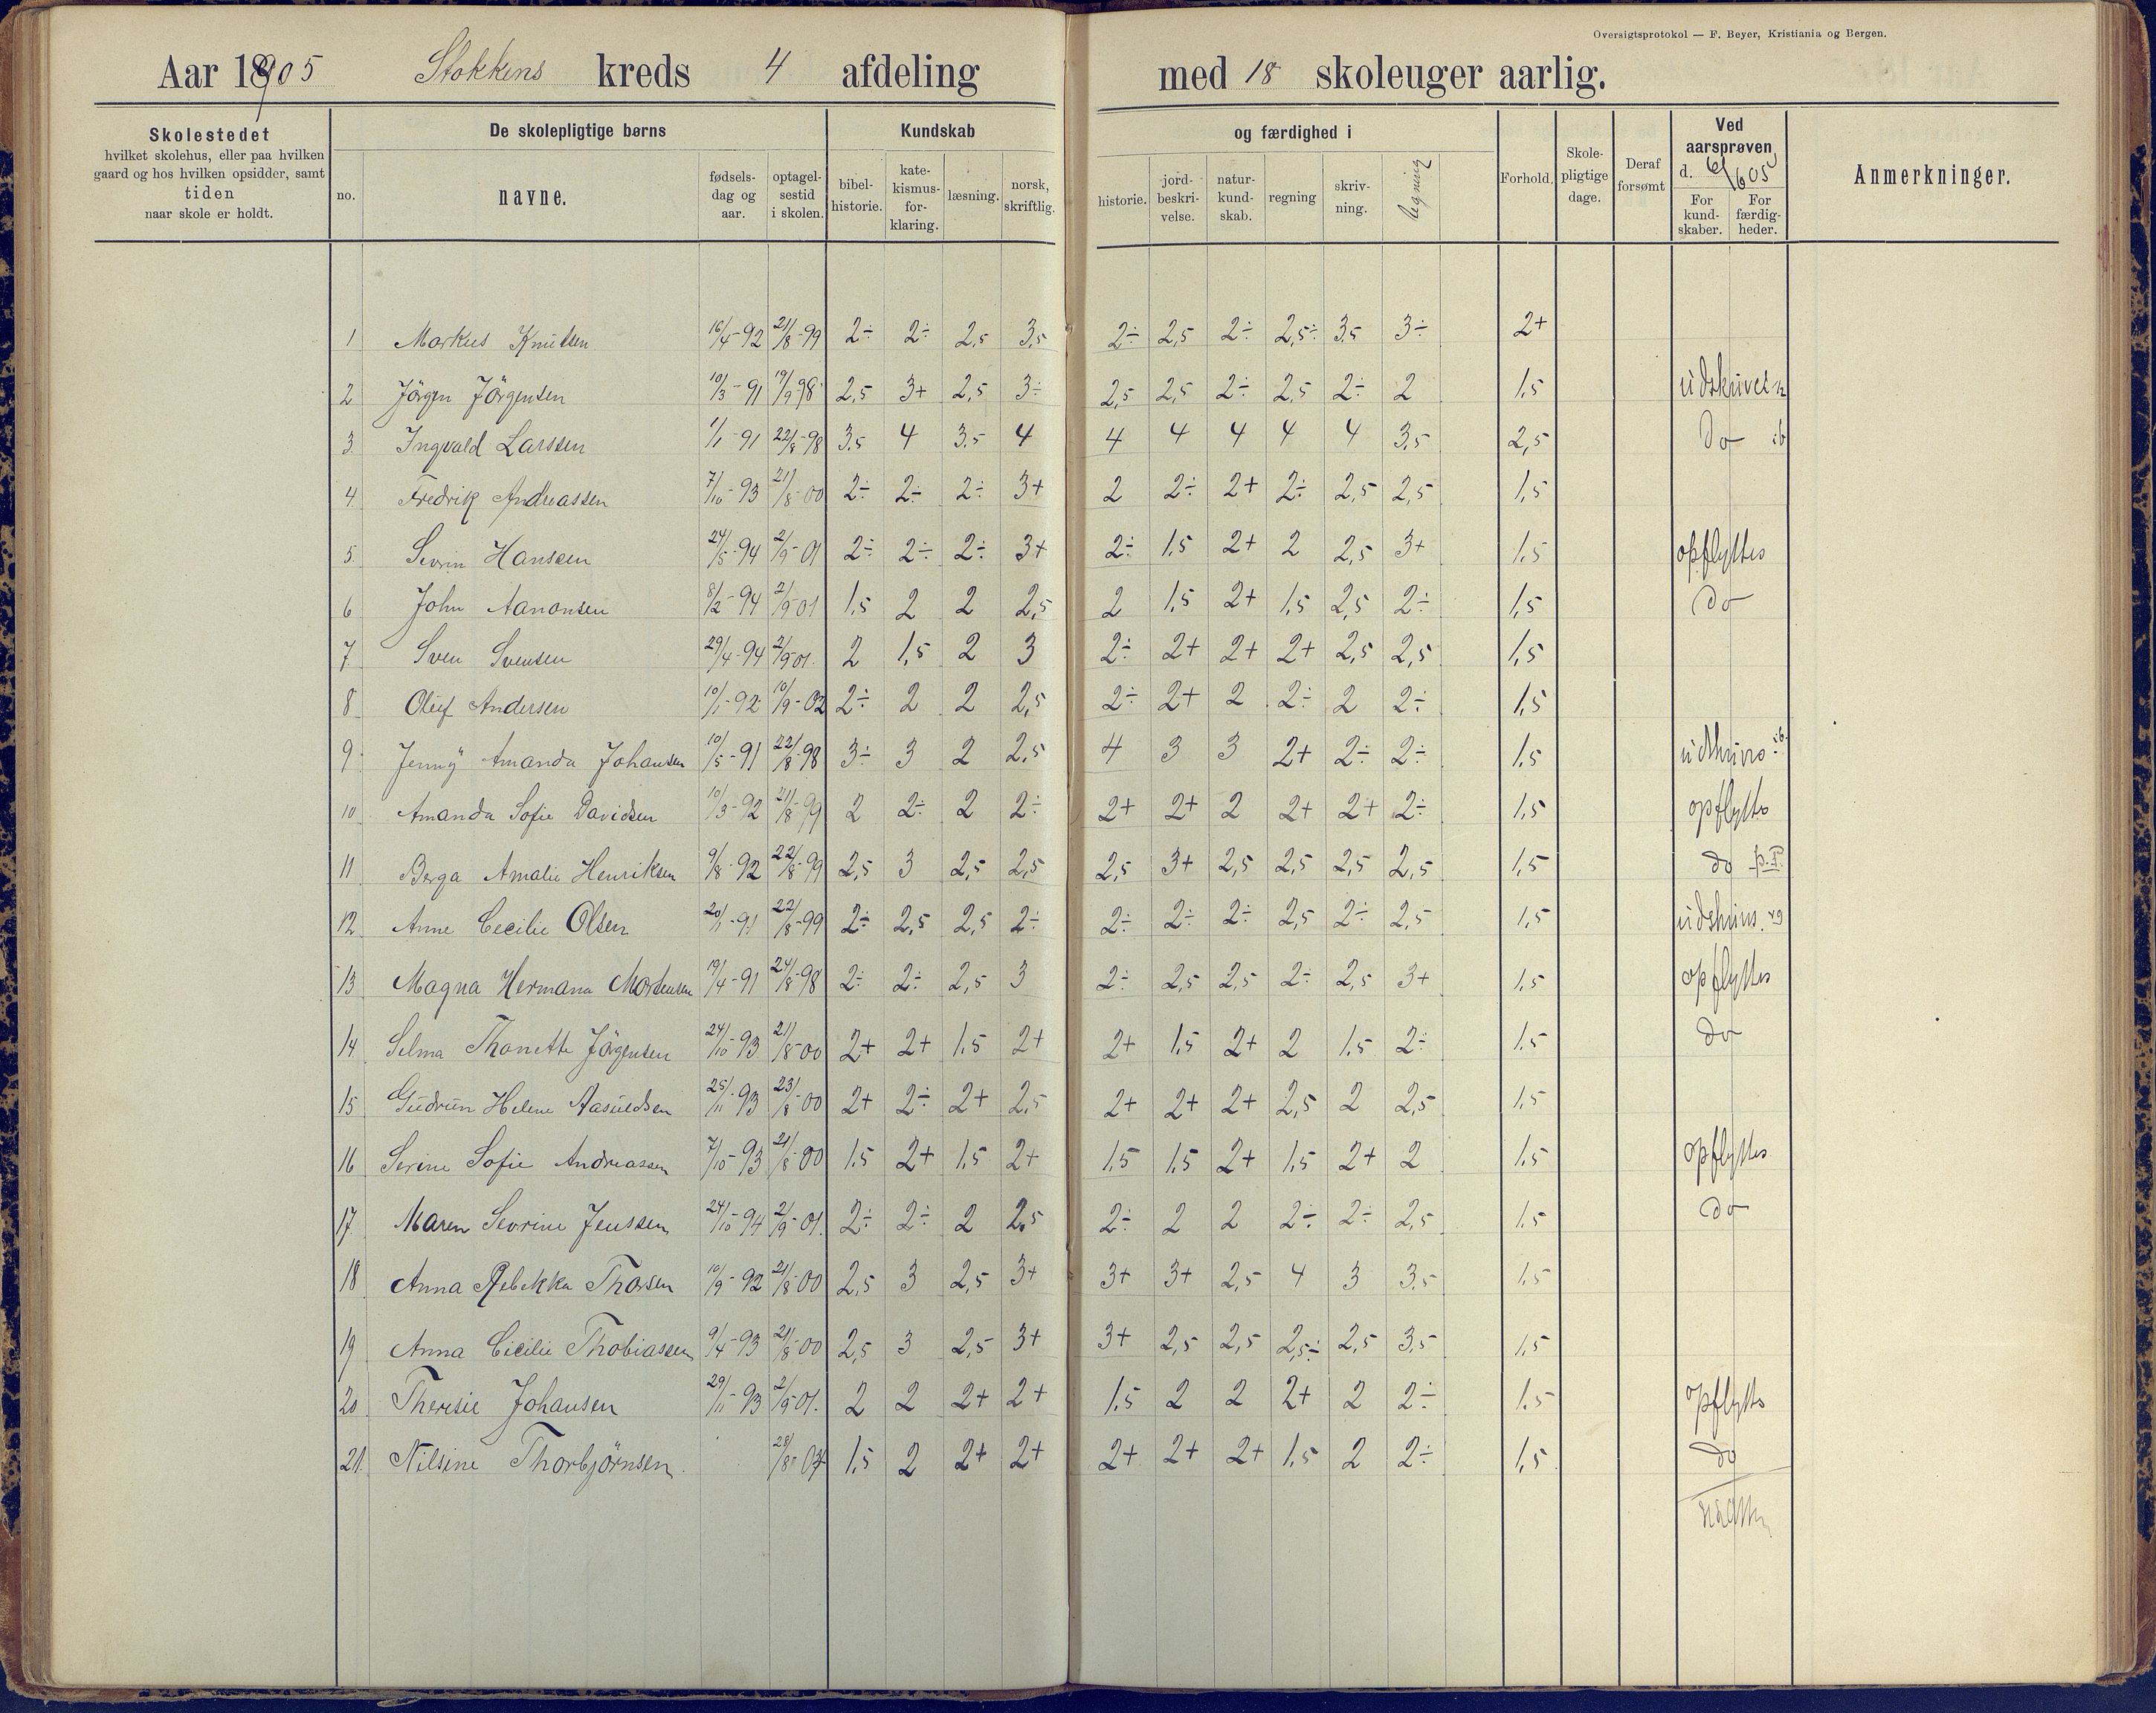 Oversigtsprotokol — F. Beyer, Kristiania og Bergen.
Aar 1905 Stokkens kreds 4 afdeling med 18 skoleuger aarlig.
Skolestedet
hvilket skolehus, eller paa hvilken
gaard og hos hvilken opsidder, samt
tiden
naar skole er holdt.
De skolepligtige børns
no.
navne.
fødsels-
dag og
aar.
optagel-
sestid
i skolen.
Kundskab
bibel-
historie.
kate-
kismus-
for-
klaring.
læsning.
norsk,
skriftlig.
og færdighed i
historie.
jord-
beskri-
velse.
natur-
kund-
skab.
regning
skriv-
ning.
tegning
Forhold.
Skole-
pligtige
dage.
Deraf
forsømt
Ved
aarsprøven
d. 6/6 05
For
kund-
skaber.
For
færdig-
heder.
Anmerkninger.
1 Markus Knutsen 16/4-92 21/8-99 2÷ 2÷ 2,5 3,5 2÷ 2,5 2÷ 2,5÷ 3,5 3÷ 2+
2 Jörgen Jörgensen 10/3-91 19/9 98 2,5 3+ 2,5 3÷ 2,5 2,5 2÷ 2,5 2÷ 2 1,5
3. Ingvald Larssen 1/1-91 22/8-98 3,5 4 3,5 4 4 4 4 4 4 3,5 2,5 do ib
4. Fredrik Andreassen 7/10-93 21/8-00 2÷ 2÷ 2÷ 3+ 2 2÷ 2+ 2÷ 2,5 2,5 1,5
5. Sevrin Hanssen 24/5-94 2/9-01 2÷ 2÷ 2÷ 3+ 2÷ 1,5 2+ 2 2,5 3+ 1,5 opflyttes
6 John Aanonsen 8/2-94 2/9-01 1,5 2 2 2,5 2 1,5 2+ 1,5 2,5 2÷ 1,5 do
7 Sven Svensen 29/4-94 2/9-01. 2 1,5 2 3 2÷ 2+ 2+ 2+ 2,5 2,5 1,5
8 Oluf Andersen 10/1-92 10/9-02 2÷ 2 2 2,5 2÷ 2+ 2 2÷ 2 2÷ 1,5
9 Jenny Amanda Johansen 10/5-91 22/8-98 3÷ 3 2 2,5 4 3 3 2+ 2÷ 2÷ 1,5
10 Amanda Sofie Davidsen 10/3-92 21/8-99 2 2÷ 2 2÷ 2+ 2+ 2 2+ 2+ 2÷ 1,5 opflyttes
11 Berga Amalie Henriksen 9/8-92 22/8-99 2,5 3 2,5 2,5 2,5 3+ 2,5 2,5 2,5 2,5 1,5 do
12 Anne Cecilie Olsen 20/1-91 22/8-99 2÷ 2,5 2,5 2÷ 2÷ 2÷ 2÷ 2,5 2÷ 2,5 1,5
13 Magna Hermana Mortensen 19/4-91 24/8-98 2÷ 2÷ 2,5 3 2÷ 2,5 2,5 2÷ 2,5 3+ 1,5 opflyttes
14 Selma Thonette Jörgensen 24/10-93 21/8-00 2+ 2+ 1,5 2+ 2+ 1,5 2+ 2 1,5 2÷ 1,5 do
15 Gudrun Helene Aasuldsen 25/11-93 23/8-00 2+ 2÷ 2+ 2,5 2+ 2+ 2+ 2,5 2 2,5 1,5
16 Serine Sofie Andreassen 7/10-93 21/8-00 1,5 2+ 1,5 2+ 1,5 1,5 2+ 1,5 2+ 2 1,5 opflyttes
17. Maren Sevrine Jenssen 24/10-94 2/9-01. 2÷ 2÷ 2 2,5 2÷ 2 2 2÷ 2÷ 2,5 1,5 do
18 Anna Rebekka Thorsen 10/9-92 21/8-00 2,5 3 2,5 3+ 3+ 3+ 2,5 4 3 3,5 1,5
19 Anna Cicilie Thobiassen 9/4-93 21/8-00 2,5 3 2,5 3+ 3+ 2,5 2,5 2,5÷ 2,5 3,5 1,5
20 Theresie Johansen 29/11-93 2/9 01. 2 2 2+ 2+ 1,5 2 2 2+ 2 2÷ 1,5 opflyttes
21. Nilsine Thorbjörnsen 28/8-04 1,5 2 2+ 2+ 2+ 2+ 2+ 1,5 2 2÷ 1,5 do